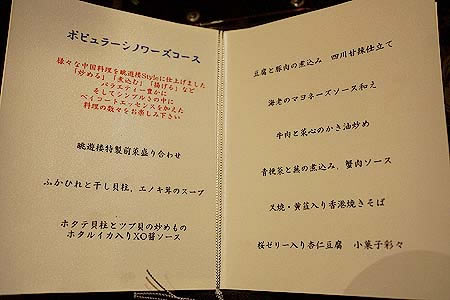 ポピュラーシノワーズコース
様々な中国料理を眺遊楼Styleに仕上げました
「炒める」「煮込む」「揚げる」など
バラエティー豊かに
そしてシンプルさの中に
ベイコートエッセンスを加えた
料理の数々をお楽しみ下さい
眺遊楼特製前菜盛り合わせ
ふかひれと干し貝柱、エノキ茸のスープ
ホタテ貝柱とツブ貝の炒めもの
ホタルイカ入りXO醤ソース
豆腐と豚肉の煮込み 四川甘辣仕立て
海老のマヨネーズソース和え
牛肉と菜心のかき油炒め
青梗菜と蕪の煮込み、蟹肉ソース
叉焼・黄韮入り香港焼きそば
桜ゼリー入り杏仁豆腐 小菓子彩々